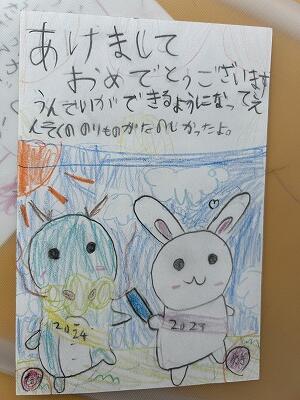 あけまして
おめでとうございます
うんていができるようになってえ
んそくののりものがたのしかったよ。
2024
2023